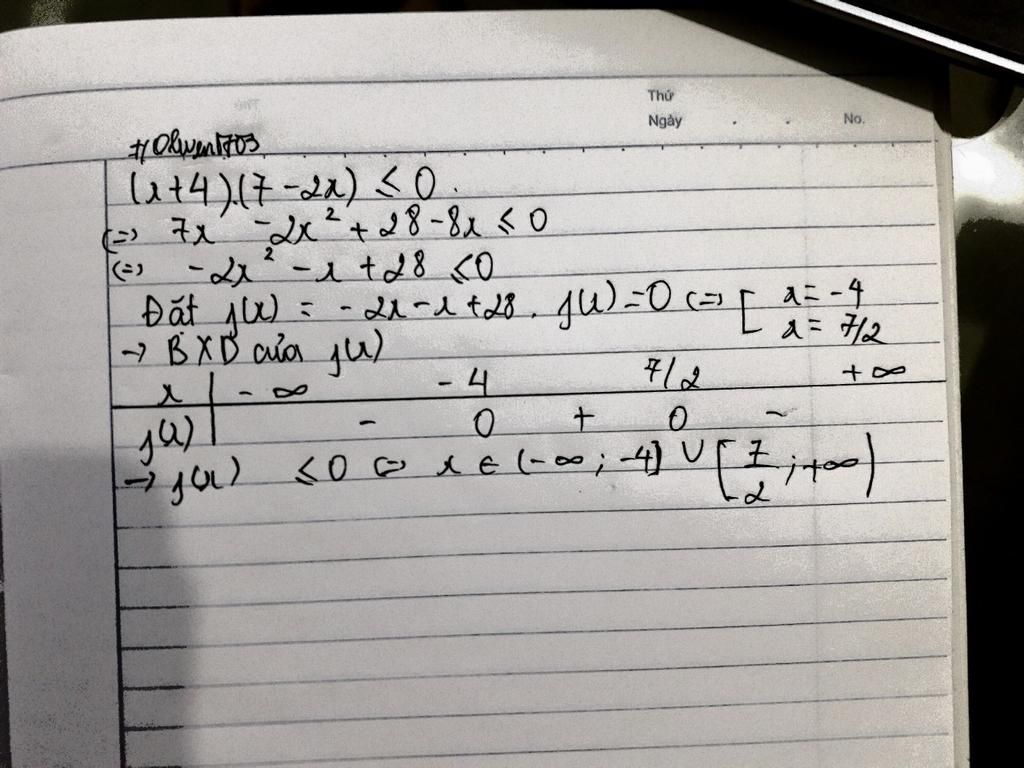 Thứ
Ngày . . No.
(x+4).(7-2x) ≤ 0.
(=> 7x -2x² + 28-8x ≤ 0
(=) -2x² - x + 28 ≤0
Đặt f(x) = -2x-x+28. f(x)=0 (=> [ x = -4
x = 7/2
→ BXD của f(x)
x | -∞ -4 7/2 +∞
f(x) | - 0 + 0 -
→ f(x) ≤0 <=> x ∈ (-∞; -4] ∪ [7/2; +∞)